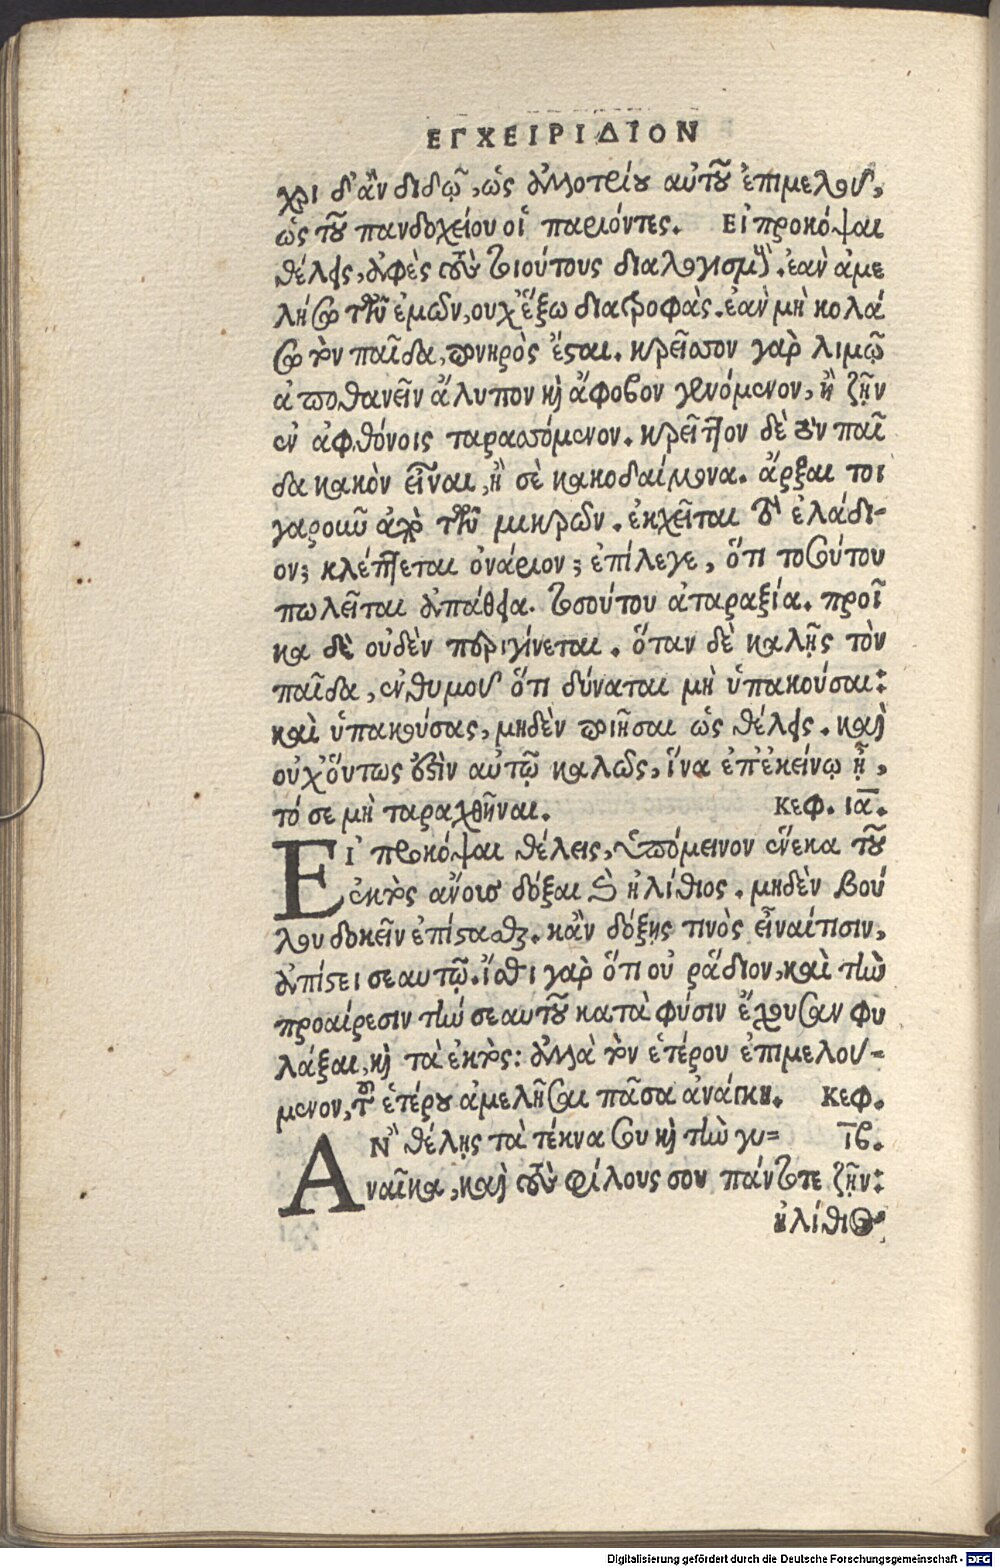 ΕΓΧΕΙΡΙΔΙΟΝ
χρι δ' ἂν διδῷ, ὡς ἀλλοτρίου αὐτοῦ ἐπιμελοῦ,
ὡς τοῦ πανδοχείου οἱ παριόντες. Εἰ προκόψαι
θέλεις, ἄφες τοὺς τοιούτους διαλογισμούς. ἐὰν ἀμε
λήσω τῶν ἐμῶν, οὐχ ἕξω διατροφὰς. ἐὰν μὴ κολά
σω τὸν παῖδα, πονηρὸς ἔσται. κρεῖσσον γὰρ λιμῷ
ἀποθανεῖν ἄλυπον καὶ ἄφοβον γενόμενον, ἢ ζῆν
ἐν ἀφθόνοις ταρασσόμενον. κρεῖττον δὲ τὸν παῖ
δα κακὸν εἶναι, ἢ σὲ κακοδαίμονα. ἄρξαι τοι
γαροῦν ἀπὸ τῶν μικρῶν. ἐκχεῖται τὸ ἐλάδι-
ον; κλέπτεται ὀνάριον; ἐπίλεγε, ὅτι τοσούτου
πωλεῖται ἀπάθεια. τοσούτου ἀταραξία. προῖ
κα δὲ οὐδὲν περιγίνεται. ὅταν δὲ καλῇς τὸν
παῖδα, ἐνθυμοῦ ὅτι δύναται μὴ ὑπακούσαι:
καὶ ὑπακούσας, μηδὲν ποιῆσαι ὡς θέλεις. καὶ
οὐχ ὅυτως ἐστὶν αὐτῷ καλῶς, ἵνα ἐπ' ἐκείνῳ ᾖ,
τό σε μὴ ταραχθῆναι. Κεφ. ια.
ΕΙ' προκόψαι θέλεις, ὑπόμεινον ἕνεκα τοῦ
ἐκτὸς ἄνους δόξαι καὶ ἠλίθιος. μηδὲν βού
λου δοκεῖν ἐπίστασθαι. κἂν δόξῃς τινὸς εἶναί τισιν,
ἀπίστει σεαυτῷ. ἴσθι γὰρ ὅτι οὐ ῥᾴδιον, καὶ τὴν
προαίρεσιν τὴν σεαυτοῦ κατὰ φύσιν ἔχουσαν φυ
λάξαι, καὶ τὰ ἐκτὸς: ἀλλὰ τὸν ἑτέρου ἐπιμελού-
μενον, τοῦ ἑτέρου ἀμελῆσαι πᾶσα ἀνάγκη. Κεφ.
ΑΝ θέλῃς τὰ τέκνα σου καὶ τὴν γυ- ιβ.
ναῖκα, καὶ τοὺς φίλους σου πάντοτε ζῆν:
ἠλίθιος
Digitalisierung gefördert durch die Deutsche Forschungsgemeinschaft - DFG